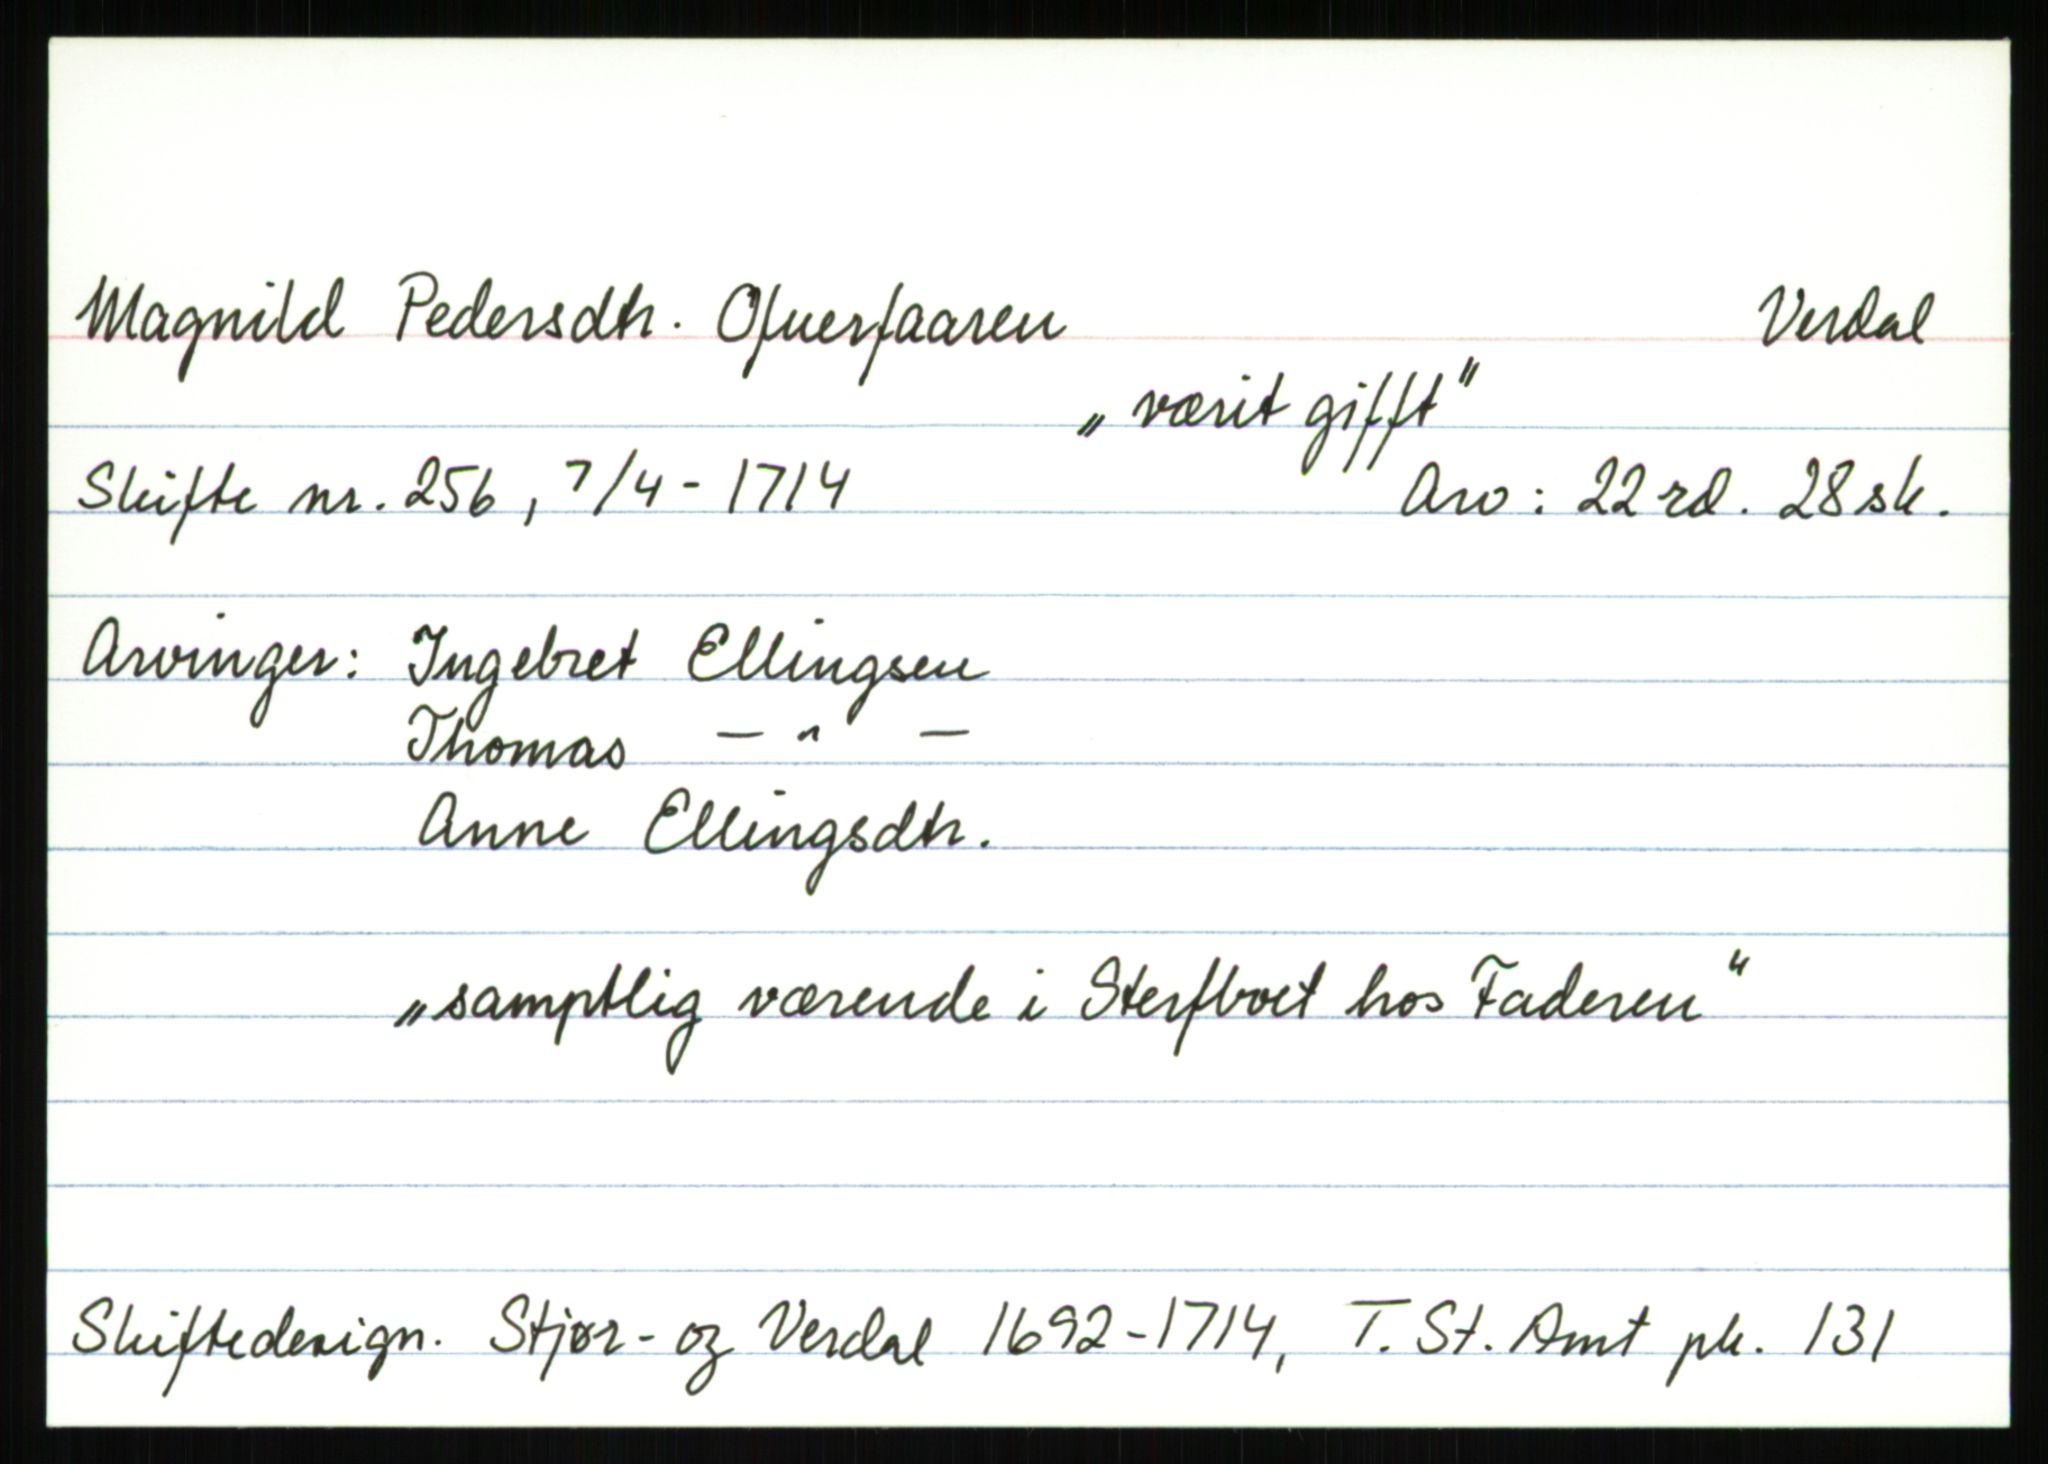 Magnild Pedersdtr. Ofuerfaaren Verdal
„værit gifft"
Skifte nr. 256, 7/4 - 1714 Arv: 22 rd. 28 sk.
Arvinger: Ingebret Ellingsen
Thomas — " —
Anne Ellingsdtr.
„samptlig værende i Sterfboet hos Faderen"
Skiftedesign. Stjør- og Verdal 1692-1714, T. St. Amt pk. 131